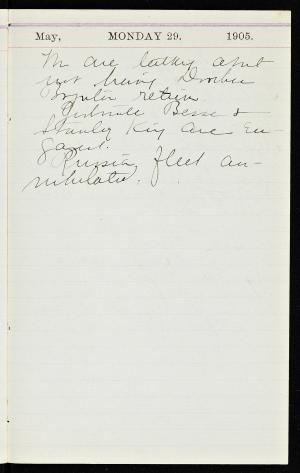 May, MONDAY 29. 1905.
We are talking about
not having Dorchen
return.
Gertrude Besse &
Stanley King are en-
gaged.
Russian fleet an-
nihilated.